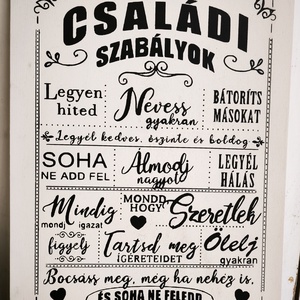 CSALÁDI
SZABÁLYOK
Legyen
hited
Nevess
gyakran
BÁTORÍTS
MÁSOKAT
Legyél kedves, őszinte és boldog
SOHA
NE ADD FEL
Álmodj
nagyot
LEGYÉL
HÁLÁS
Mindig
mondj igazat
MONDD,
HOGY
Szeretlek
figyelj
Tartsd meg
ÍGÉRETEIDET
Ölelj
gyakran
Bocsáss meg, még ha nehéz is,
ÉS SOHA NE FELEDD